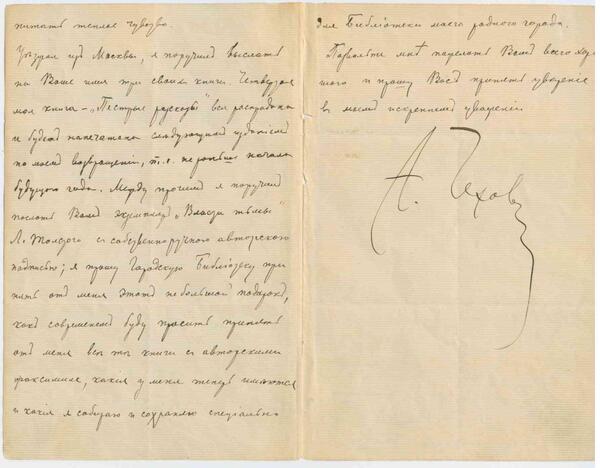 питать теплое чувство.
Уезжая из Москвы, я поручил выслать
на Ваше имя три своих книги. Четвертая
моя книга — „Пестрые рассказы" вся распродана
и будет напечатана следующим изданием
по моем возвращении, т. е. не раньше начала
будущего года. Между прочим я поручил
послать Вам экземпляр „Власти тьмы"
Л. Толстого с собственноручною авторского
надписью; я прошу Городскую Библіотеку при-
нять от меня этотъ небольшой подарокъ,
какъ современемъ буду просить принять
от меня все те книги с авторскими
факсимиле, какія у меня теперь имеются
и какія я собираю и сохраняю спеціально
для Библіотеки моего родного города.
Позвольте мне пожелать Вамъ всего хоро-
шаго и прошу Васъ принять уверение
в моемъ искреннемъ уважении.
А. Чехов